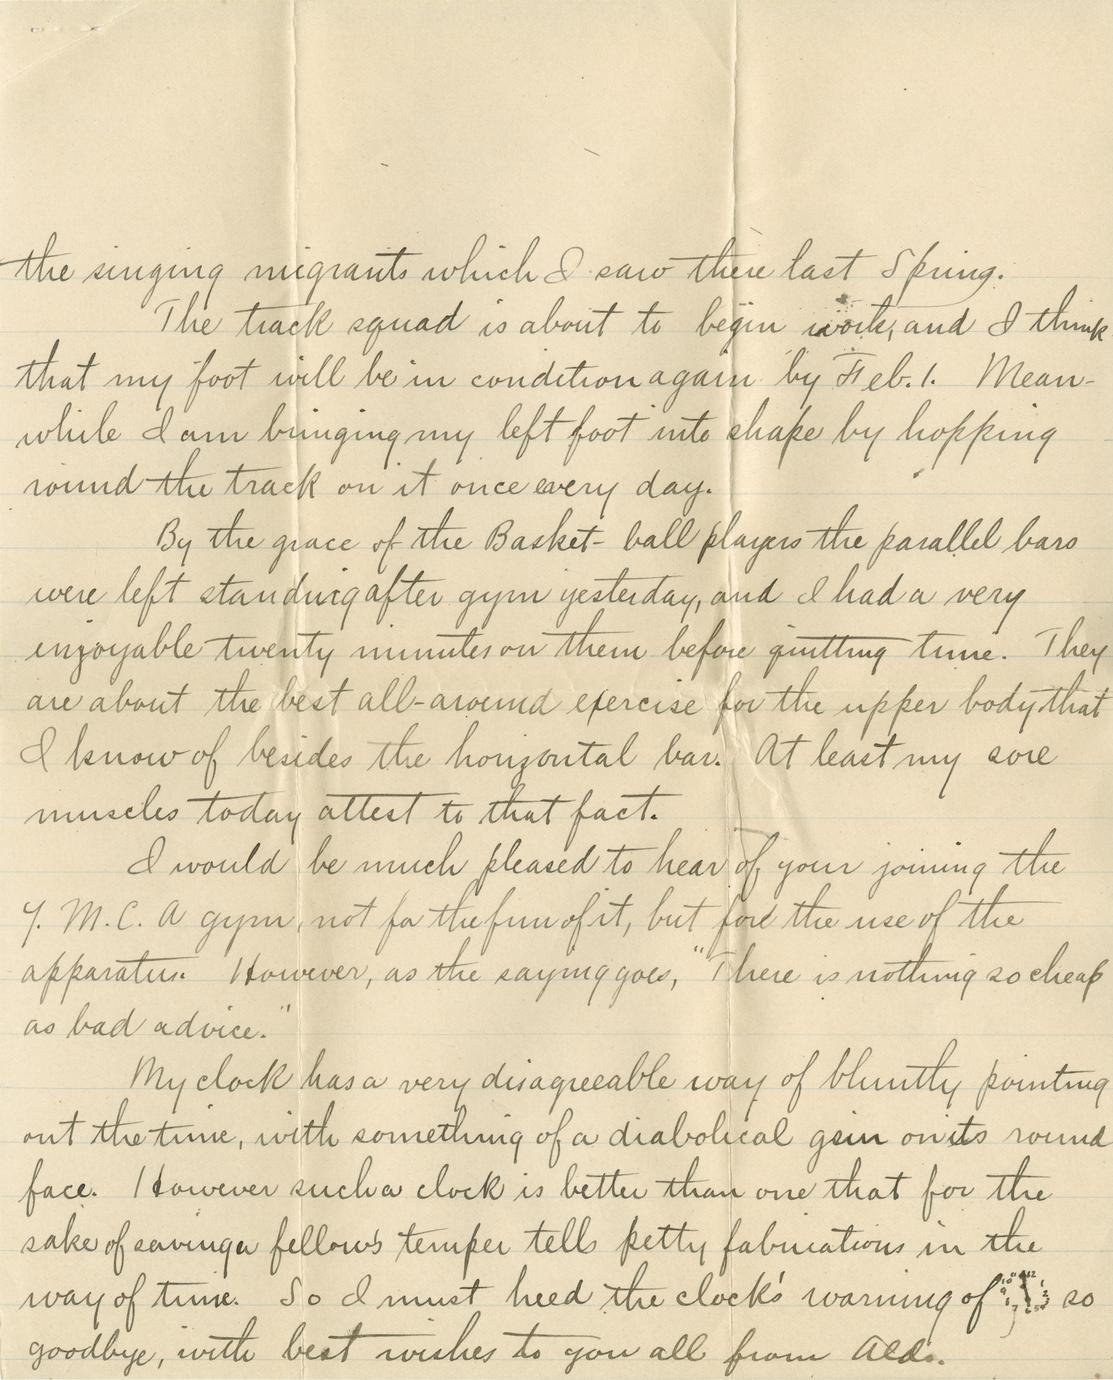 the singing migrants which I saw there last Spring.
The track squad is about to begin work, and I think
that my foot will be in condition again by Feb. 1. Mean-
while I am bringing my left foot into shape by hopping
round the track on it once every day.
By the grace of the Basket-ball players the parallel bars
were left standing after gym yesterday, and I had a very
enjoyable twenty minutes on them before quitting time. They
are about the best all-around exercise for the upper body that
I know of besides the horizontal bar. At least my sore
muscles today attest to that fact.
I would be much pleased to hear of your joining the
Y. M. C. A gym, not for the fun of it, but for the use of the
apparatus. However, as the saying goes, "There is nothing so cheap
as bad advice."
My clock has a very disagreeable way of bluntly pointing
out the time, with something of a diabolical grin on its round
face. However such a clock is better than one that for the
sake of saving a fellow's temper tells petty fabrications in the
way of time. So I must heed the clock's warning of so
goodbye, with best wishes to you all from Aldo.